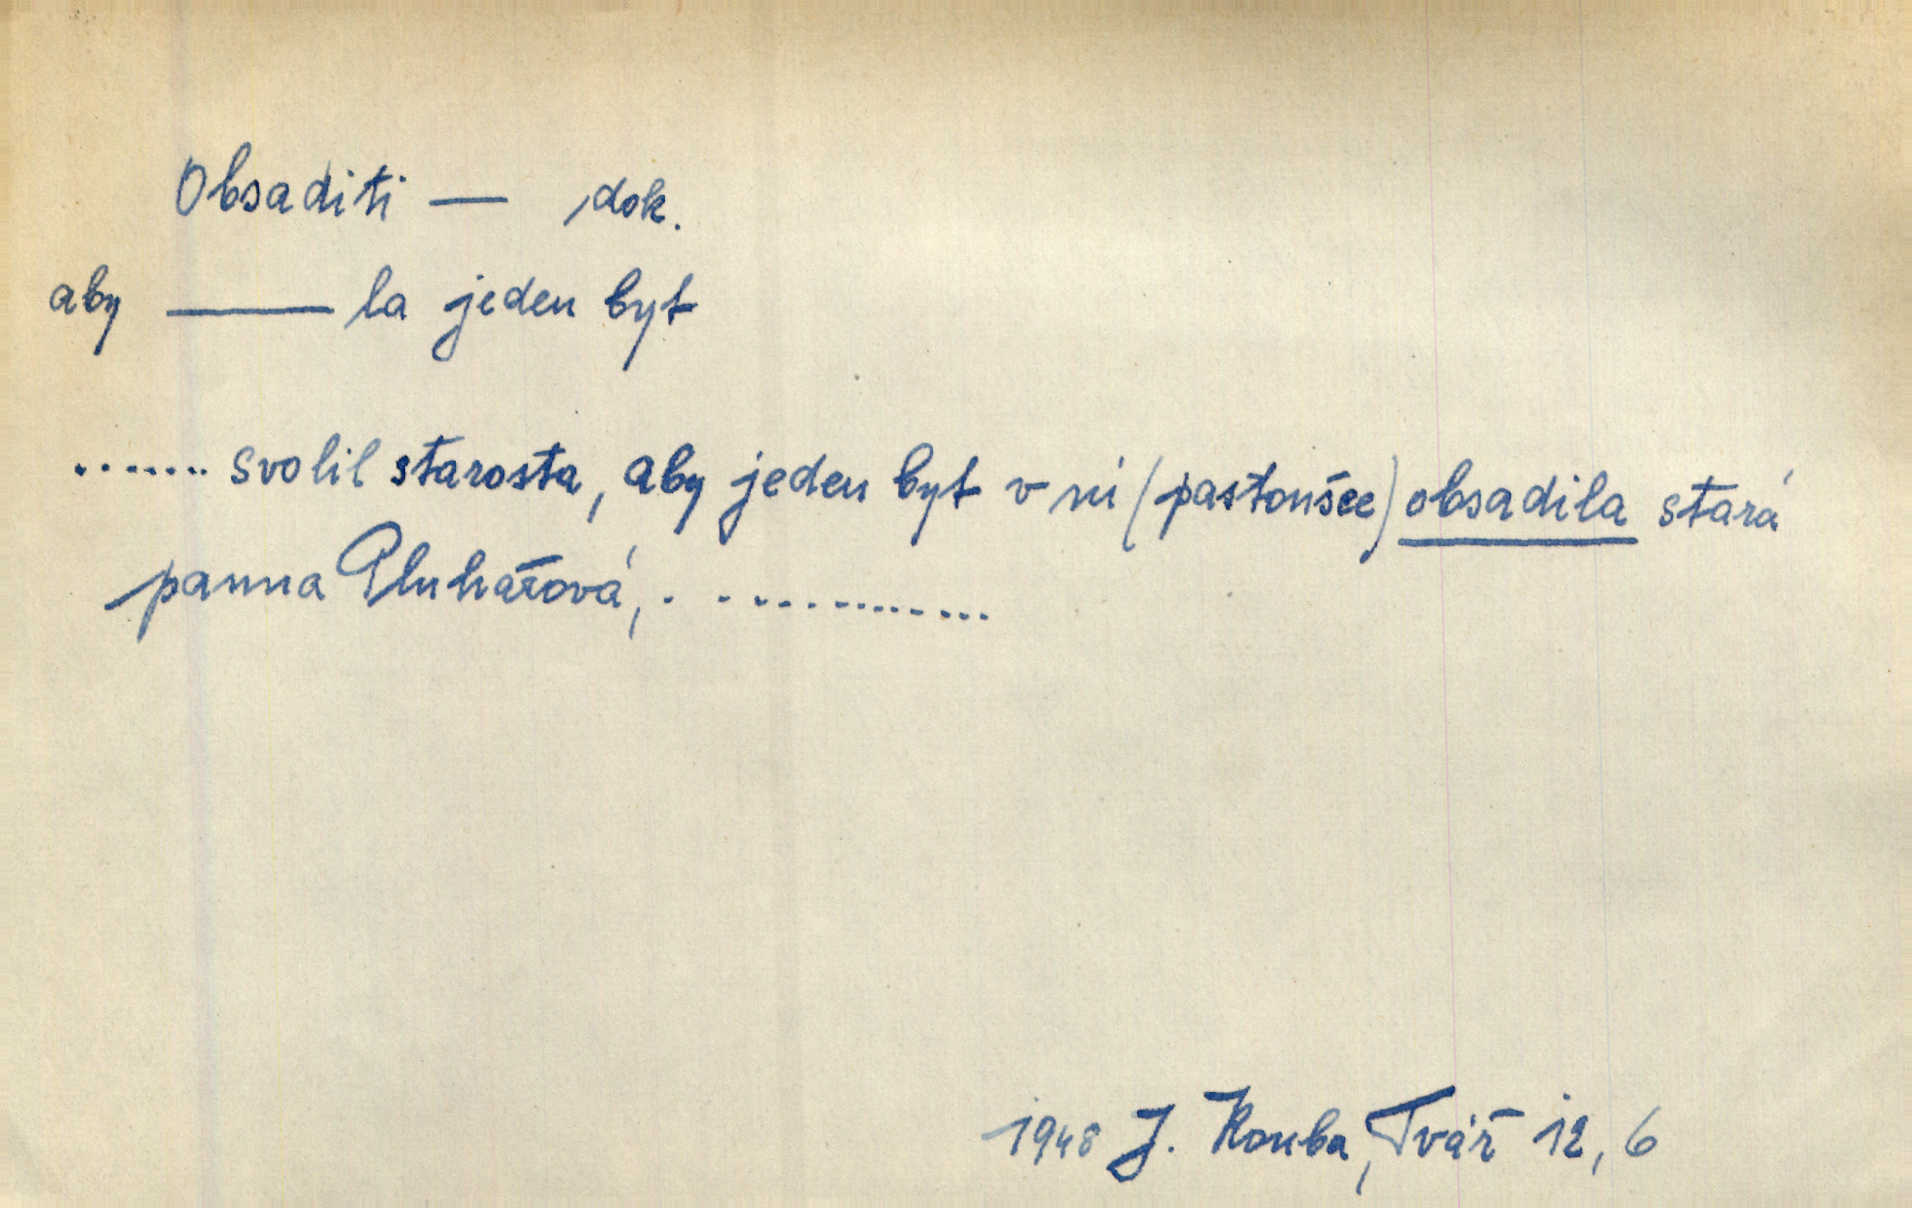 Obsaditi — dok.
aby ——— la jeden byt
....... svolil starosta, aby jeden byt v ní (pastoušce) obsadila stará
panna Pluhařová, . . ............
1948 J. Kouba, Tvář 12, 6